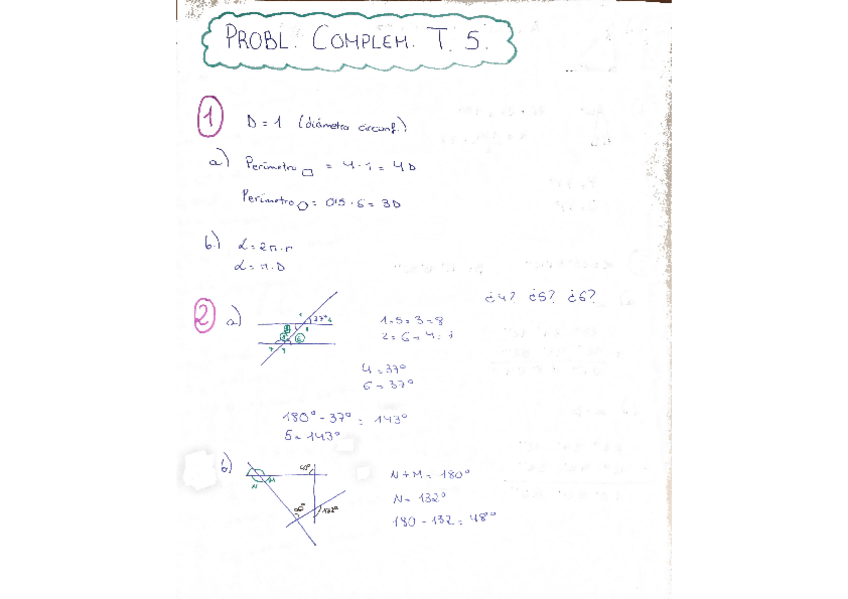 PROBL. COMPLEM. T. 5.
1 D = 1 (diámetro circunf.)
a) Perímetro □ = 4 · 1 = 4D
Perímetro = 0'5 · 6 = 3D
b) L = 2π · r
L = π · D
¿4? ¿5? ¿6?
2 a) 37º
1 = 5 = 3 = 8
2 = 6 = 4 =
4 = 37º
6 = 37º
180º - 37º = 143º
5 = 143º
b) N M
N + M = 180º
N = 132º
180 - 132 = 48º